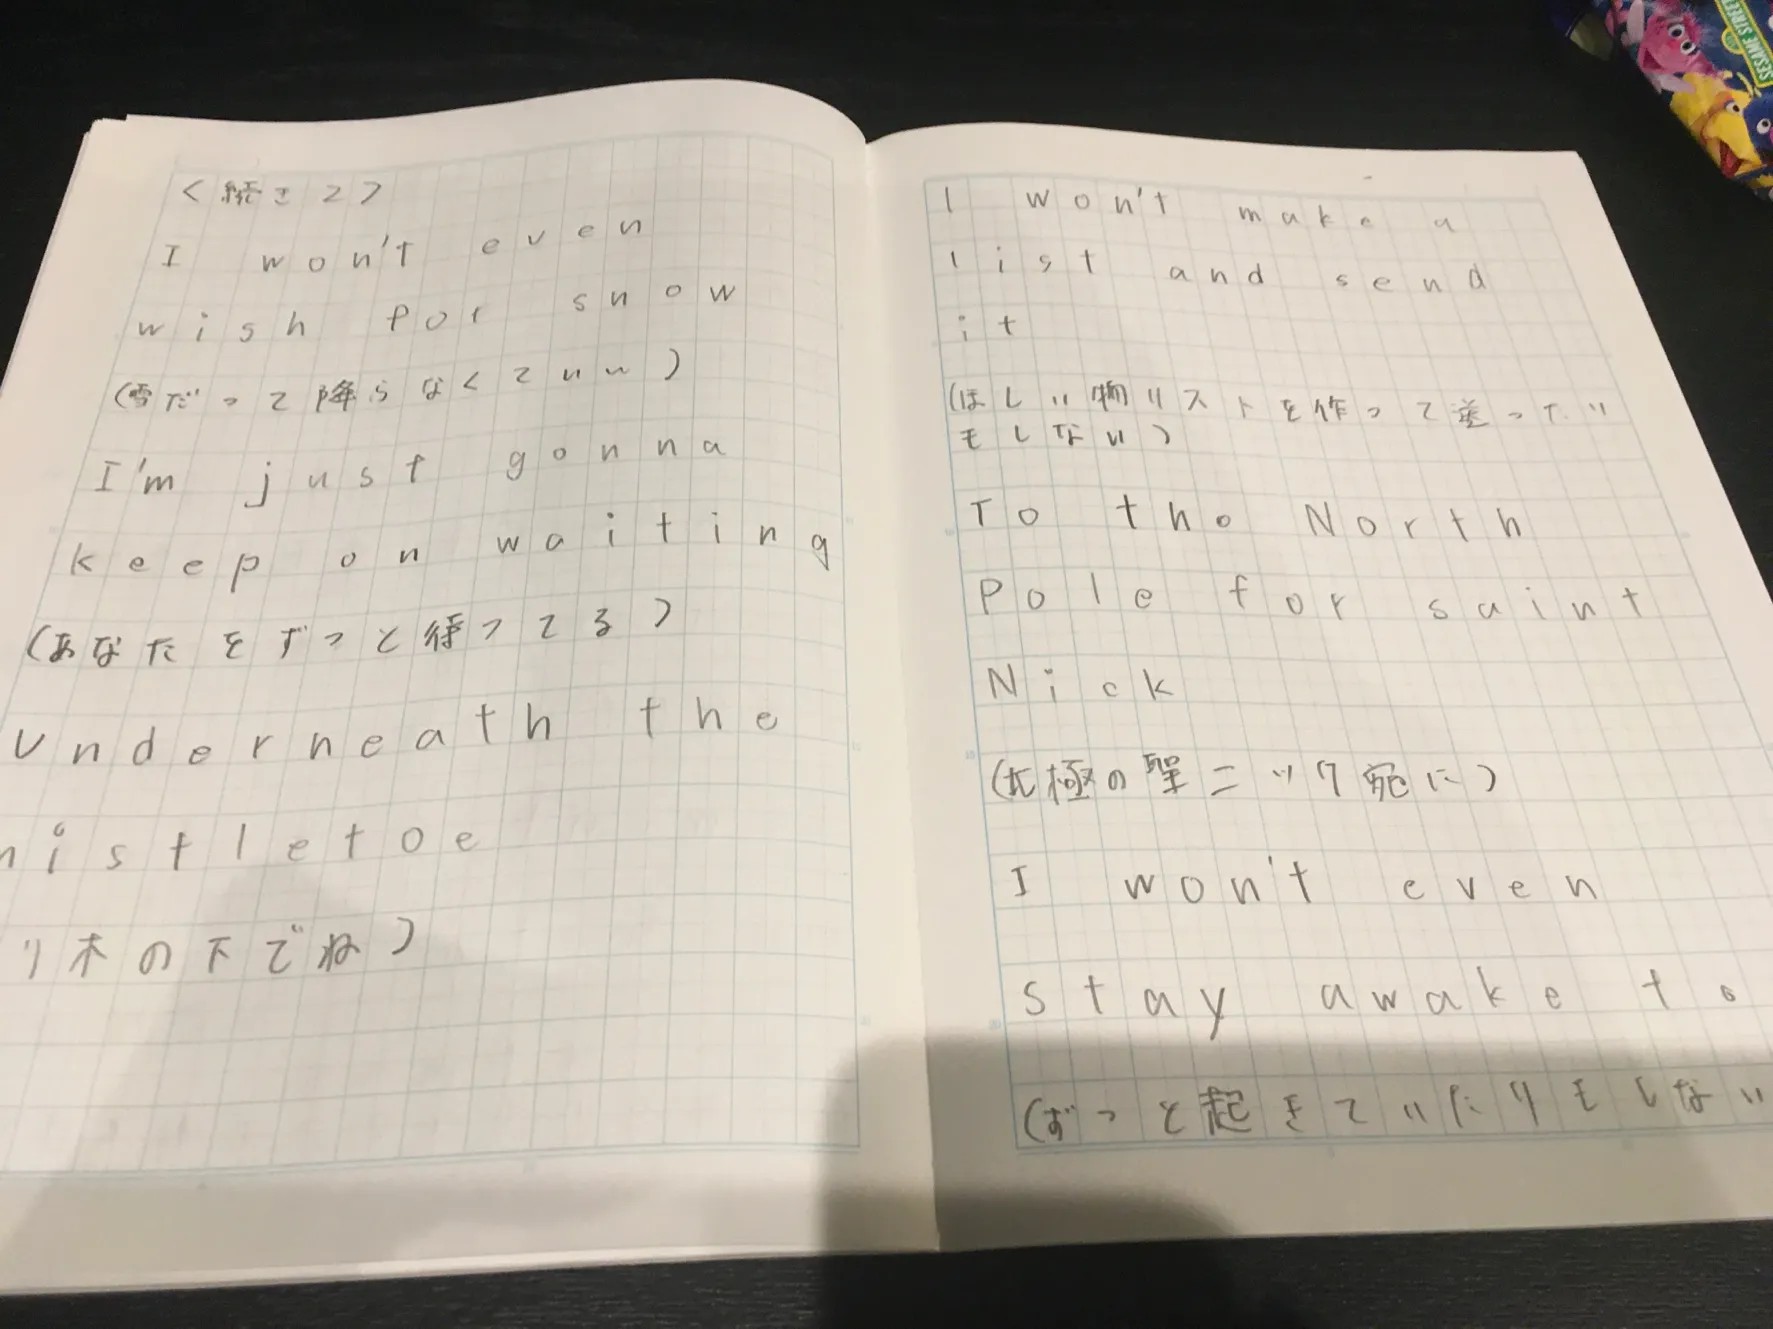 <続き2>
I won't even
wish for snow
(雪だって降らなくていい)
I'm just gonna
keep on waiting
(あなたをずっと待ってる)
Underneath the
mistletoe
リ木の下でね)
I won't make a
list and send
it
(ほしい物リストを作って送ってい
もしない)
To the North
Pole for saint
Nick
(北極の聖ニック宛に)
I won't even
stay awake to
(ずっと起きていたりもしない
SESAME STREET